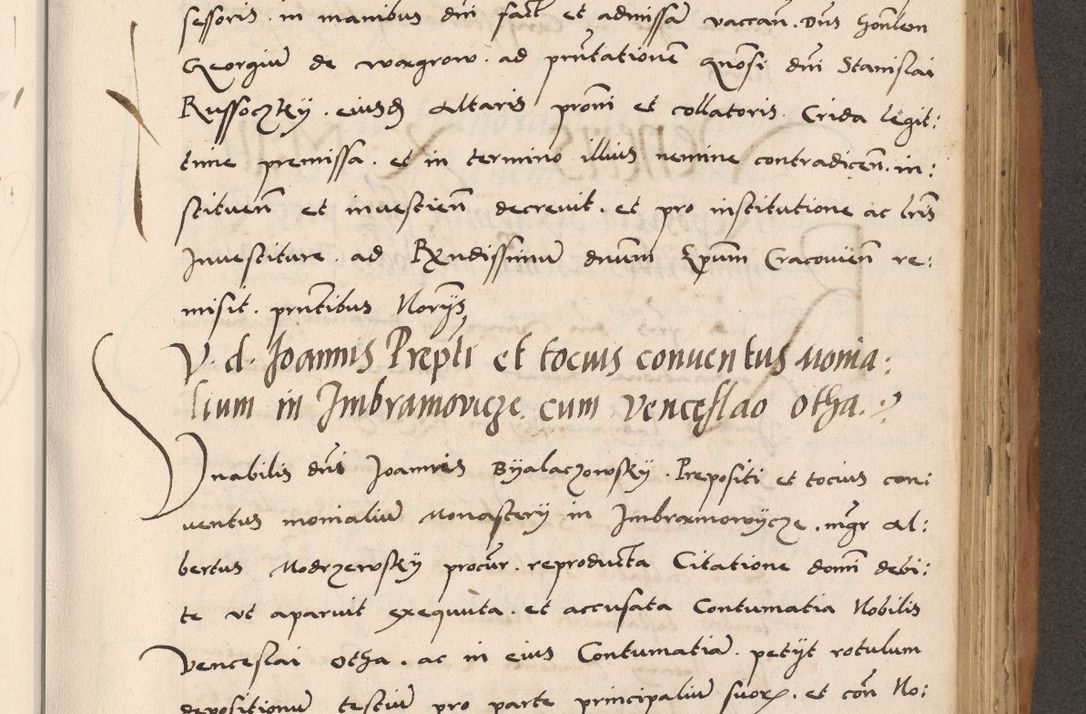 sessoris in manibus dni fact et admissa vaccan. Dns honlem
Georgium de wargrow. ad prntationem gnosi dni Stanislai
Russoczky. eiusd Altaris proni et collatoris. Crida legit:
time premissa. et in termino illius nemine contradicen. in:
stituen et investien decrevit. et pro institutione ac lris
Investiture. ad Rxndissimum dnum Epum Cracovien re:
misit. prntibus Norijs
V. d. Joannis Prepti et tocius conventus monia:
lium in Imbramovicze. cum Venceslao otha.
Vnabilis dni Joannis Byalaczowsky. Prepositi et tocius con:
ventus monialium Monastery in Imbramowycze. mgr Al:
bertus Modrzewsky procur. reproducta Citatione domi debi:
te ut aparuit exequuta. et accusata Contumatia Nobilis
Venceslai otha. ac in eius Contumatia. petyt rotulum
depositionum testium pro parte principalium suor. et con No: